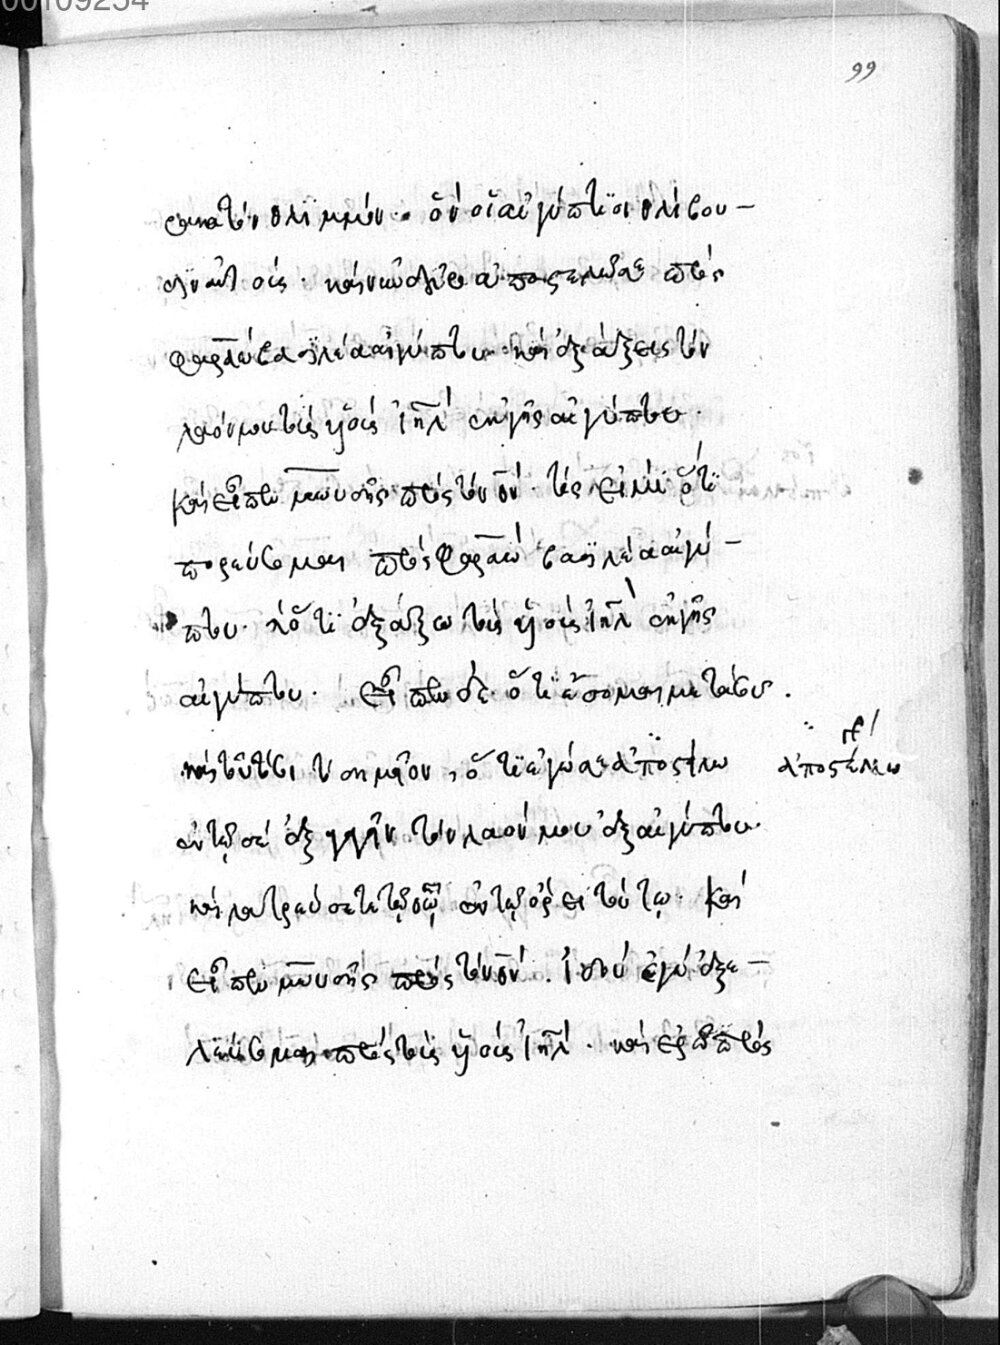 00109254
99
ρακα τὸν θλιμμὸν. ὃν οἱ αἰγύπτιοι θλίβου-
σιν αὐτούς. καὶ νῦν δεῦρο ἀποστείλω σε πρὸς
φαραὼ βασιλέα αἰγύπτου. καὶ ἐξάξεις τὸν
λαόν μου τοὺς υἱοὺς ἰηλ ἐκ γῆς αἰγύπτου.
καὶ εἶπε μωυσῆς πρὸς τὸν θν. τίς εἰμι ὅτι
πορεύσομαι πρὸς φαραὼ βασιλέα αἰγύ-
πτου. καὶ ὅτι ἐξάξω τοὺς υἱοὺς ἰηλ ἐκ γῆς
αἰγύπτου. εἶπε δὲ ὅτι ἔσομαι μετὰ σοῦ.
καὶ τοῦτό σοι τὸ σημεῖον, ὅτι ἐγώ σε ἀποστέλλω
ἀποστέλλω
ἐν τῷ σὲ ἐξαγαγεῖν τὸν λαόν μου ἐξ αἰγύπτου.
καὶ λατρεύσετε τῷ θῶ ἐν τῷ ὄρει τούτῳ. καὶ
εἶπε μωυσῆς πρὸς τὸν θν. ἰδοὺ ἐγὼ ἐξε-
λεύσομαι πρὸς τοὺς υἱοὺς ἰηλ. καὶ ἐρῶ πρὸς